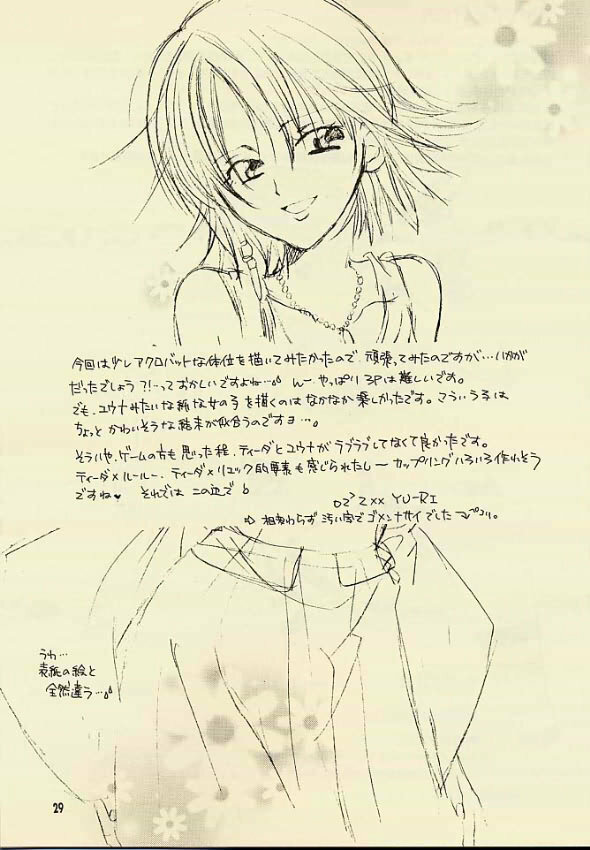 今回は少しアクロバットな体位を描いてみたかったので、頑張ってみたのですが…いかが
だったでしょう?!…っておかしいですよね… んー、やっぱり3Pは難しいです。
でも、ユウナみたいな純な女の子を描くのはなかなか楽しかったです。こういう子は
ちょっとかわいそうな結末が似合うのですヨ…。
そういや、ゲームの方も思った程、ティーダとユウナがラブラブしてなくて良かったです。
ティーダ×ルールー、ティーダ×リュック的要素も感じられたし〜カップリングいろいろ作れそう
ですね♥ それでは この辺で
YU-RI
⇨ 相変わらず汚い字でゴメンナサイでした
うわ…
表紙の絵と
全然違う…
29